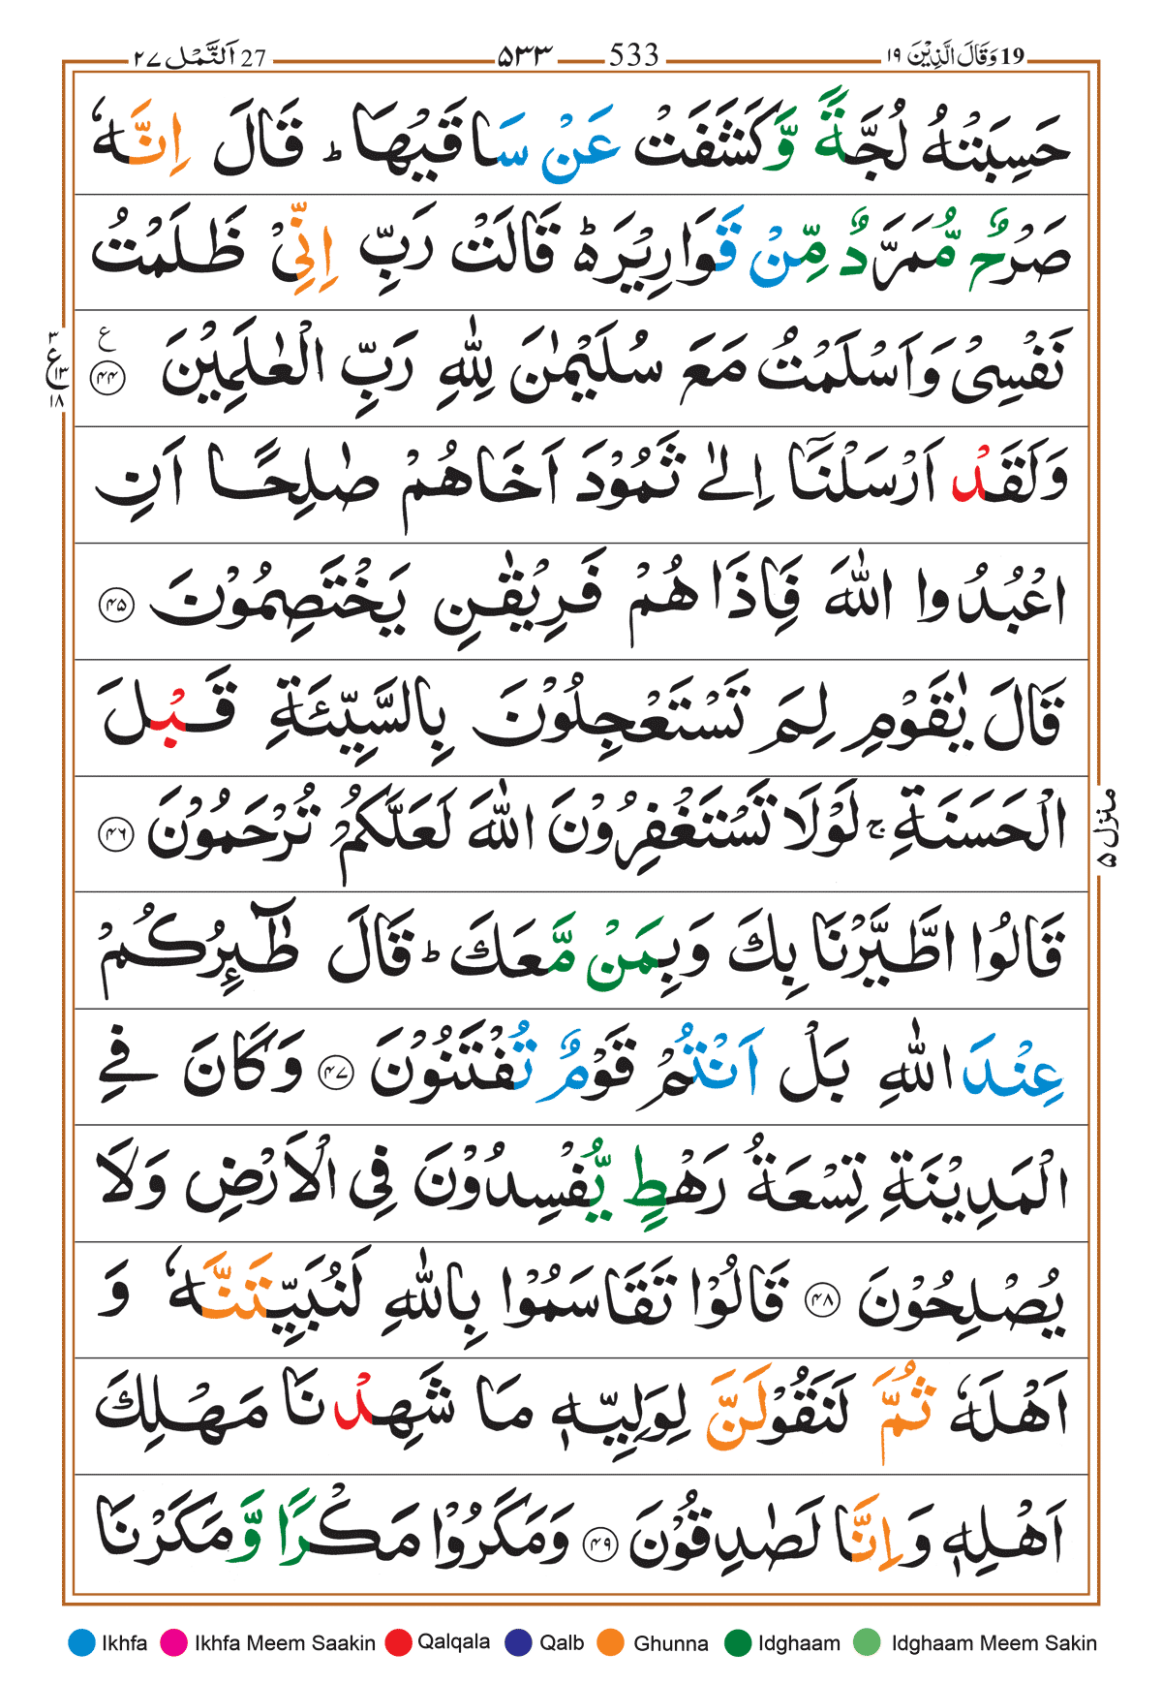 اَلنَّمْل ٢٧ 27 ۵۳۳ 533 19 وَقَالَ الَّذِيْنَ ١٩
حَسِبَتْهُ لُجَّةً وَّكَشَفَتْ عَنْ سَاقَيْهَا ؕ قَالَ اِنَّهٗ
صَرْحٌ مُّمَرَّدٌ مِّنْ قَوَارِيْرَ ؕ۬ قَالَتْ رَبِّ اِنِّيْ ظَلَمْتُ
نَفْسِيْ وَاَسْلَمْتُ مَعَ سُلَيْمٰنَ لِلّٰهِ رَبِّ الْعٰلَمِيْنَ ۴۴ ع
٣ ع ١٣ ١٨
وَلَقَدْ اَرْسَلْنَاۤ اِلٰى ثَمُوْدَ اَخَاهُمْ صٰلِحًا اَنِ
اعْبُدُوا اللّٰهَ فَاِذَا هُمْ فَرِيْقٰنِ يَخْتَصِمُوْنَ ۴۵
قَالَ يٰقَوْمِ لِمَ تَسْتَعْجِلُوْنَ بِالسَّيِّئَةِ قَبْلَ
الْحَسَنَةِ ۚ لَوْلَا تَسْتَغْفِرُوْنَ اللّٰهَ لَعَلَّكُمْ تُرْحَمُوْنَ ۴۶
منزل ۵
قَالُوا اطَّيَّرْنَا بِكَ وَبِمَنْ مَّعَكَ ؕ قَالَ طٰٓئِرُكُمْ
عِنْدَ اللّٰهِ بَلْ اَنْتُمْ قَوْمٌ تُفْتَنُوْنَ ۴۷ وَكَانَ فِي
الْمَدِيْنَةِ تِسْعَةُ رَهْطٍ يُّفْسِدُوْنَ فِي الْاَرْضِ وَلَا
يُصْلِحُوْنَ ۴۸ قَالُوْا تَقَاسَمُوْا بِاللّٰهِ لَنُبَيِّتَنَّهٗ وَ
اَهْلَهٗ ثُمَّ لَنَقُوْلَنَّ لِوَلِيِّهٖ مَا شَهِدْنَا مَهْلِكَ
اَهْلِهٖ وَاِنَّا لَصٰدِقُوْنَ ۴۹ وَمَكَرُوْا مَكْرًا وَّمَكَرْنَا
Ikhfa Ikhfa Meem Saakin Qalqala Qalb Ghunna Idghaam Idghaam Meem Sakin